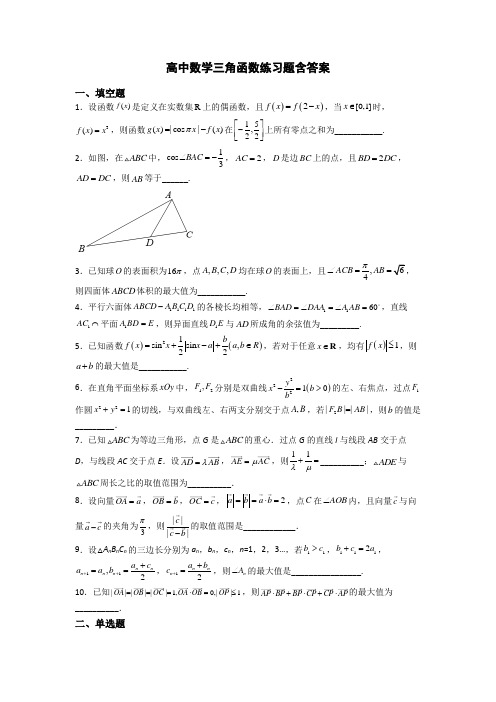 高中数学三角函数练习题含答案
一、填空题
1．设函数 f(x) 是定义在实数集 R 上的偶函数，且 f(x)=f(2−x)，当 x∈[0,1] 时，
f(x)=x³，则函数 g(x)=|cosπx|−f(x) 在 [−1/2, 5/2] 上所有零点之和为___________．
2．如图，在△ABC 中，cos∠BAC=−1/3，AC=2，D 是边 BC 上的点，且 BD=2DC，
AD=DC，则 AB 等于______．
A
B
D
C
3．已知球 O 的表面积为 16π，点 A,B,C,D 均在球 O 的表面上，且∠ACB=π/4，AB=√6，
则四面体 ABCD 体积的最大值为___________．
4．平行六面体 ABCD−A₁B₁C₁D₁ 的各棱长均相等，∠BAD=∠DAA₁=∠A₁AB=60°，直线
AC₁⌒平面 A₁BD=E，则异面直线 D₁E 与 AD 所成角的余弦值为_________．
5．已知函数 f(x)=1/2 sin²x+1/2 sin x−a+b/2 (a,b∈R)，若对于任意 x∈R，均有 |f(x)|≤1，则
a+b 的最大值是___________．
6．在直角平面坐标系 xOy 中，F₁,F₂ 分别是双曲线 x²−y²/b²=1(b>0) 的左、右焦点，过点 F₁
作圆 x²+y²=1 的切线，与双曲线左、右两支分别交于点 A,B，若 |F₂B|=|AB|，则 b 的值是
_________．
7．已知△ABC 为等边三角形，点 G 是△ABC 的重心．过点 G 的直线 l 与线段 AB 交于点
D，与线段 AC 交于点 E．设 AD=λAB，AE=μAC，则 1/λ+1/μ=__________；△ADE 与
△ABC 周长之比的取值范围为__________．
8．设向量 OA=a，OB=b，OC=c，|a|=|b|=a·b=2，点 C 在∠AOB 内，且向量 c 与向
量 a−c 的夹角为 π/3，则 |c|/|c−b| 的取值范围是____________．
9．设△AₙBₙCₙ 的三边长分别为 aₙ，bₙ，cₙ，n=1，2，3…，若 b₁>c₁，b₁+c₁=2a₁，
aₙ₊₁=aₙ,bₙ₊₁=(aₙ+cₙ)/2，cₙ₊₁=(aₙ+bₙ)/2，则∠Aₙ 的最大值是________________．
10．已知 |OA|=|OB|=|OC|=1,OA·OB=0,|OP|≤1，则 AP·BP+BP·CP+CP·AP 的最大值为
__________．
二、单选题